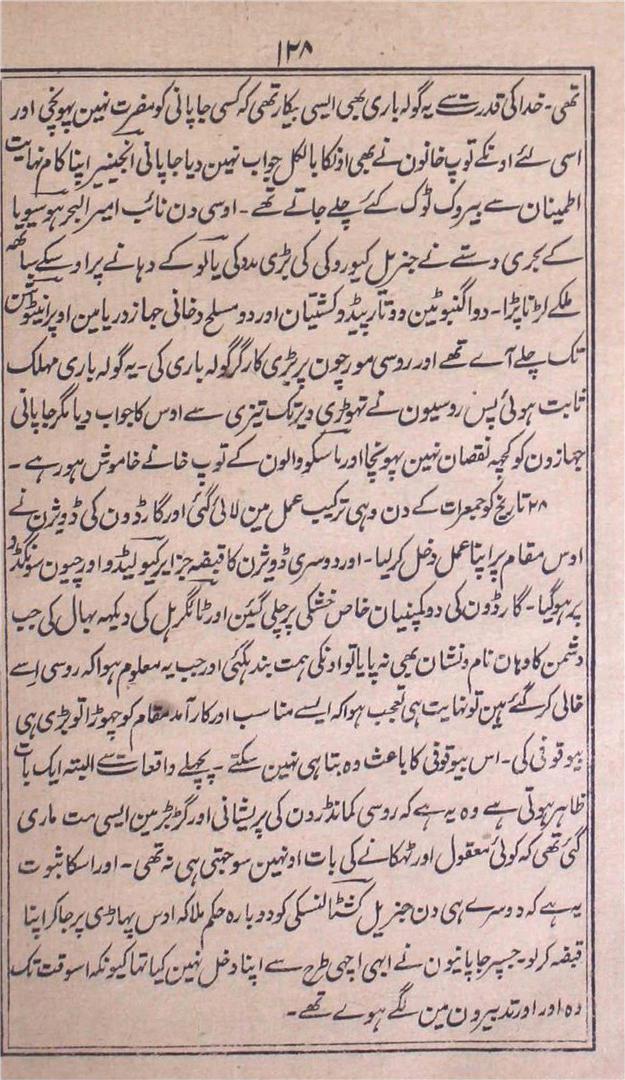 ۱۲۸
تھی۔ خدا کی قدرت سے یہ گولہ باری بھی ایسی بیکار تھی کہ کسی جاپانی کو مضرت نہین پہونچی اور
اسی لئے اونکے توپ خانون نے بھی اونکا بالکل جواب نہین دیا جاپانی انجینیر اپنا کام نہایت
اطمینان سے بیروک ٹوک کئے چلے جاتے تھے۔ اوسی دن نائب امیر البحر ہوسویا
کے بحری دستے نے جنریل کیوروکی کی بڑی مدد کی یالو کے دہانے پر اوسکے ساتھ
ملکے لڑنا پڑا۔ دو اگنبوٹین دو تارپیڈو کشتیان اور دو مسلح دخانی جہاز دریا مین اوپر
تک چلے آے تھے اور روسی مورچون پر بڑی کارگر گولہ باری کی۔ یہ گولہ باری مہلک
ثابت ہوئی پس روسیون نے تھوڑی دیر تک تیزی سے اوس کا جواب دیا مگر جاپانی
جہازون کو کچھہ نقصان نہین پہونچا اور ماسکو والون کے توپ خانے خاموش ہورہے۔
۲۸ تاریخ کو جمعرات کے دن وہی ترکیب عمل مین لائی گئی اور گارڈون کی ڈویژن نے
اوس مقام پر اپنا عمل دخل کرلیا۔ اور دوسری ڈویژن کا قبضہ جزایر کیولیڈو اور چیون
پر ہوگیا۔ گارڈون کی دو کمپنیان خاص خشکی پر چلی گئین اور ٹائگر ہل کی دیکھہ بہال کی جب
دشمن کا وہان نام و نشان بھی نہ پایا تو اونکی ہمت بندہ گئی اور جب یہ معلوم ہوا کہ روسی اسے
خالی کرگئے ہین تو نہایت ہی تعجب ہوا کہ ایسے مناسب اور کارآمد مقام کو چھوڑا تو بڑی ہی
بیوقوفی کی۔ اس بیوقوفی کا باعث وہ بتا ہی نہین سکتے۔ پچھلے واقعات سے البتہ ایک بات
ظاہر ہوتی ہے وہ یہ ہے کہ روسی کمانڈردن کی پریشانی اور گڑبڑ مین ایسی مت ماری
گئی تھی کہ کوئی معقول اور ٹھکانے کی بات اونہین سوجتی ہی نہ تھی۔ اور اسکا ثبوت
یہ ہے کہ دوسرے ہی دن جنریل کو دوبارہ حکم ملا کہ اوس پہاڑی پر جاکر اپنا
قبضہ کرلو۔ جسپر جاپانیون نے ابہی اچہی طرح سے اپنا دخل نہین کیا تہا کیونکہ اسوقت تک
وہ اور اور تدبیرون مین لگے ہوے تھے۔